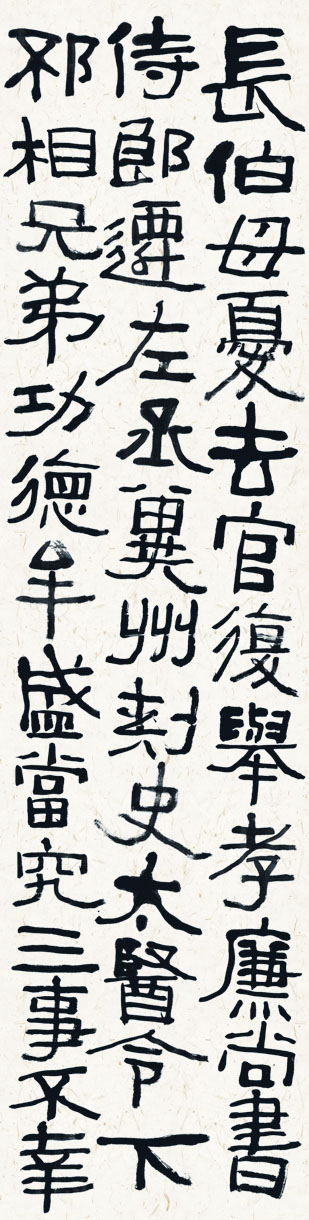 長伯母憂去官復舉孝廉尚書
侍郎遷左丞冀州刾史太醫令下
邳相兄弟功德牟盛當究三事不幸